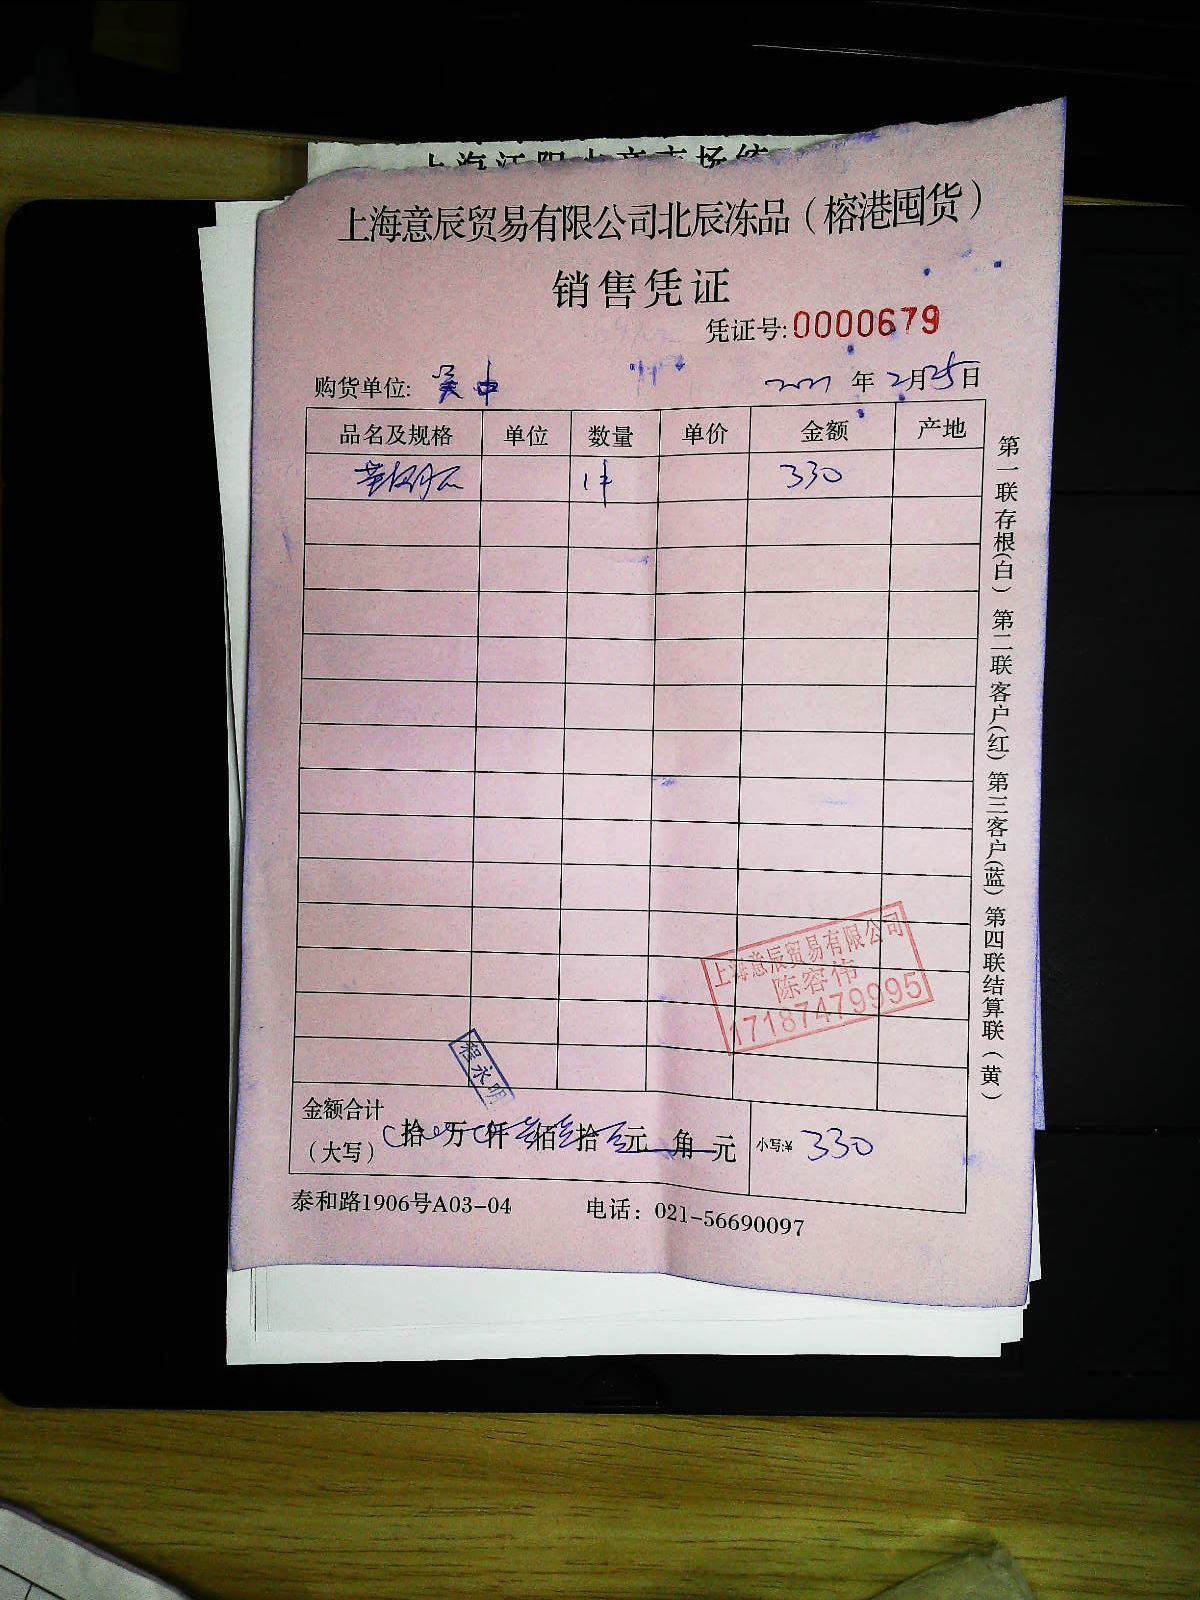 上海江阳水产市场统
上海意辰贸易有限公司北辰冻品（榕港囤货）
销售凭证
凭证号:0000679
购货单位: 吴中 2021 年 2月25日
品名及规格 单位 数量 单价 金额 产地
1件 330
上海意辰贸易有限公司
陈容伟
17187479995
程永明
金额合计
（大写） 拾 万 仟 叁佰叁拾 元 角 元 小写:¥ 330
泰和路1906号A03-04 电话：021-56690097
第一联存根(白) 第二联客户(红) 第三客户(蓝) 第四联结算联(黄)